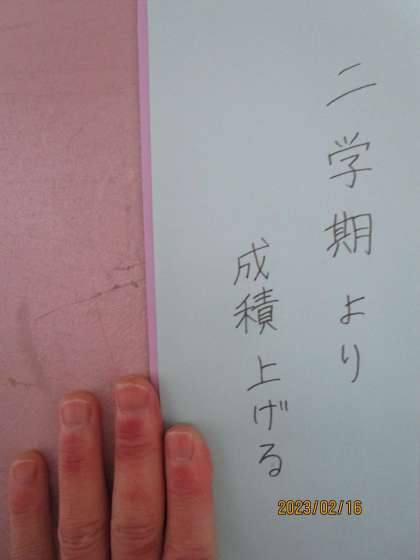 二学期より
成積上げる
2023/02/16